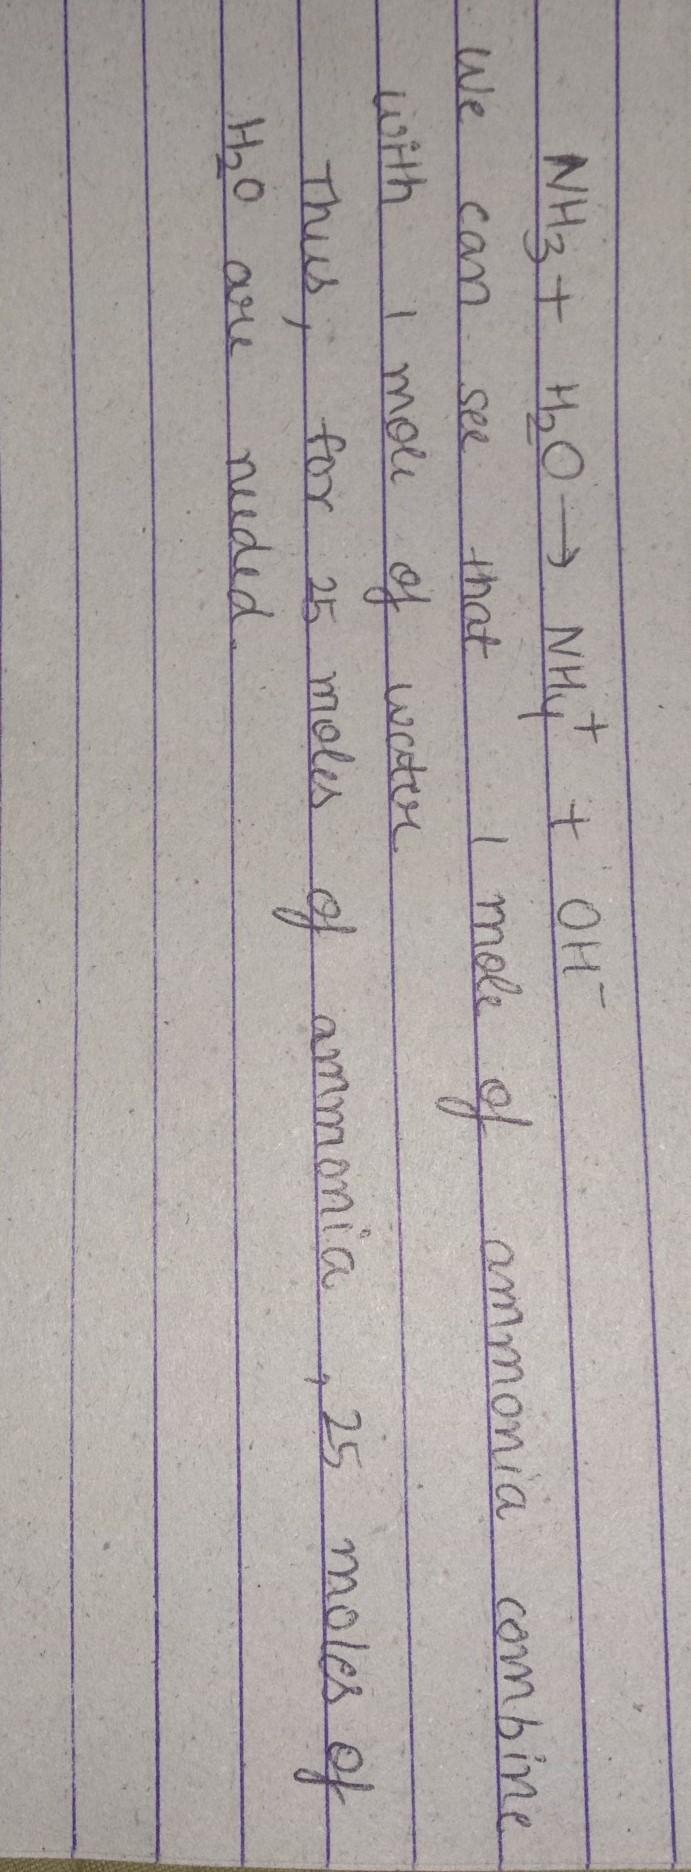 NH₃ + H₂O → NH₄⁺ + OH⁻
We can see that 1 mole of ammonia combine
with 1 mole of water.
Thus, for 25 moles of ammonia, 25 moles of
H₂O are needed.